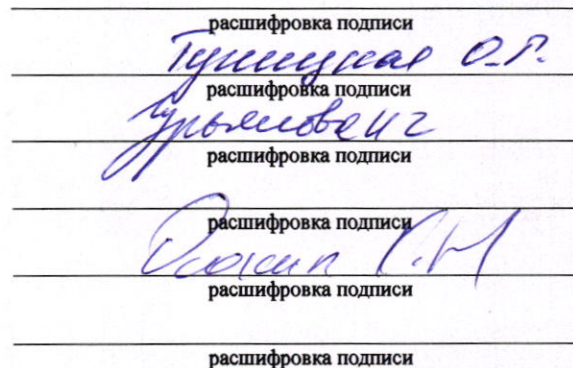 расшифровка подписи
О.Г.
расшифровка подписи
расшифровка подписи
расшифровка подписи
расшифровка подписи
расшифровка подписи